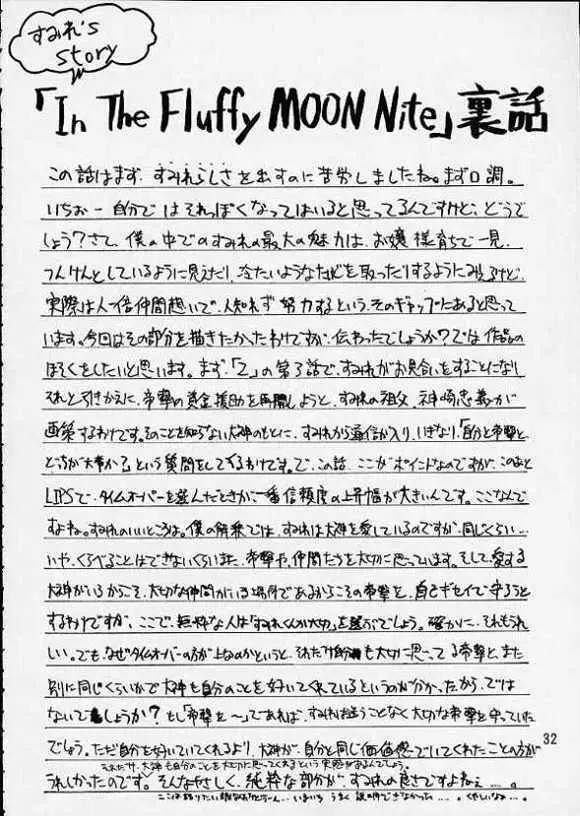 すみれ's
Story
「In The Fluffy MOON Nite」裏話
この話はまず、すみれらしさを出すのに苦労しましたね。まず口調。
いちおー自分ではそれっぽくなってはいると思ってるんですけど、どうで
しょう？さて、僕の中でのすみれの最大の魅力は、お嬢様育ちで一見、
つんけんとしているように見えたり、冷たいような態度を取ったりするようにみえるけど、
実際は人一倍仲間想いで、人知れず努力するという、そのギャップにあると思って
います。今回はその部分を描きたかったわけですが、伝わったでしょうか？では作品の
ほそくをしたいと思います。まず「2」の第3話で、すみれがお見合いをすることになり
それと引きかえに、帝撃の資金援助を再開しようと、すみれの祖父、神崎忠義が
画策するわけです。そのことを知らない大神のもとに、すみれから通信が入り、いきなり、「自分と帝撃と
どっちが大事か？」という質問をしてくるわけです。で、この話、ここがポイントなのですが、このあと
LIPSで、タイムオーバーを選んだときが一番信頼度の上昇幅が大きいんです。ここなんで
すよね。すみれのいいところは。僕の解釈では、すみれは大神を愛しているのですが、同じくらい…
いや、くらべることはできないくらいに、帝撃や、仲間たちを大切に思っています。そして、愛する
大神がいるからこそ、大切な仲間がいる場所であるからこその帝撃を、自己ギセイで守ろうと
するわけですが、ここで、無粋な人は「すみれくんが大切」を選ぶでしょう。確かに、それもうれ
しい。でもなぜタイムオーバーの方が上なのかというと、それだけ自分も大切に思ってる帝撃と、また
別に同じくらいかで大神も自分のことを好いてくれているというのが分かったから、では
ないでしょうか？もし「帝撃を〜」であれば、すみれは迷うことなく大切な帝撃を守っていた
でしょう。ただ自分を好いていてくれるより、大神が、自分と同じ価値感でいてくれたことの方が
それだけ、大神も自分のことを大切に思ってくれるという実感があるんでしょう。
うれしかったのです。そんなやさしく、純粋な部分が、すみれの良さですよねぇ…。
いまいちうまく説明できなかった…。くやしいなぁ…。
32